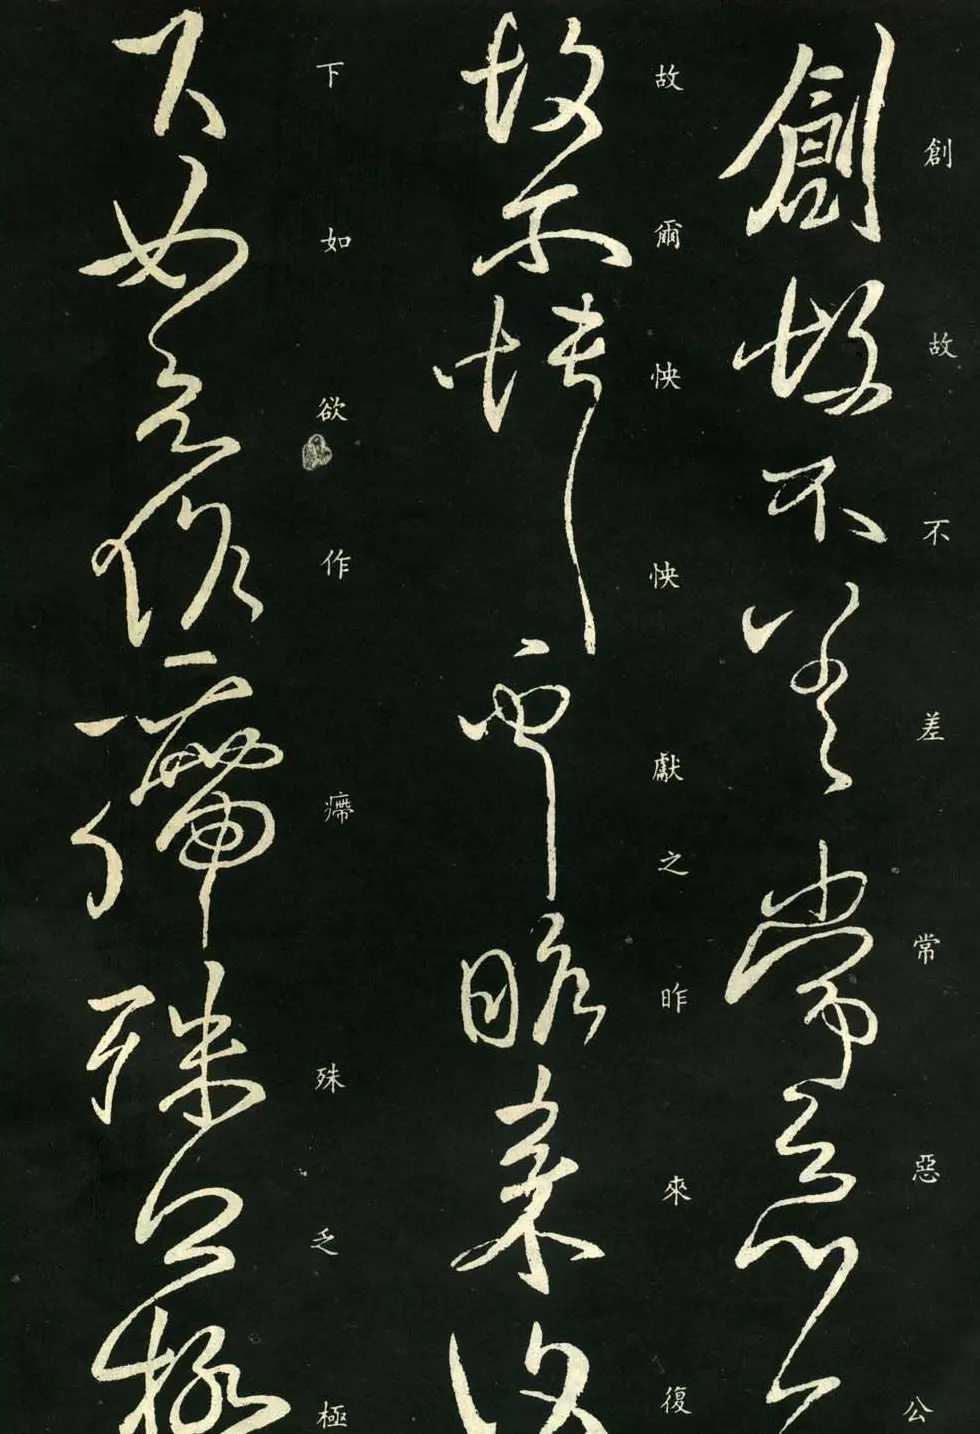 創故不差常惡公
故爾怏怏獻之昨來復
下如欲作㿃殊乏極